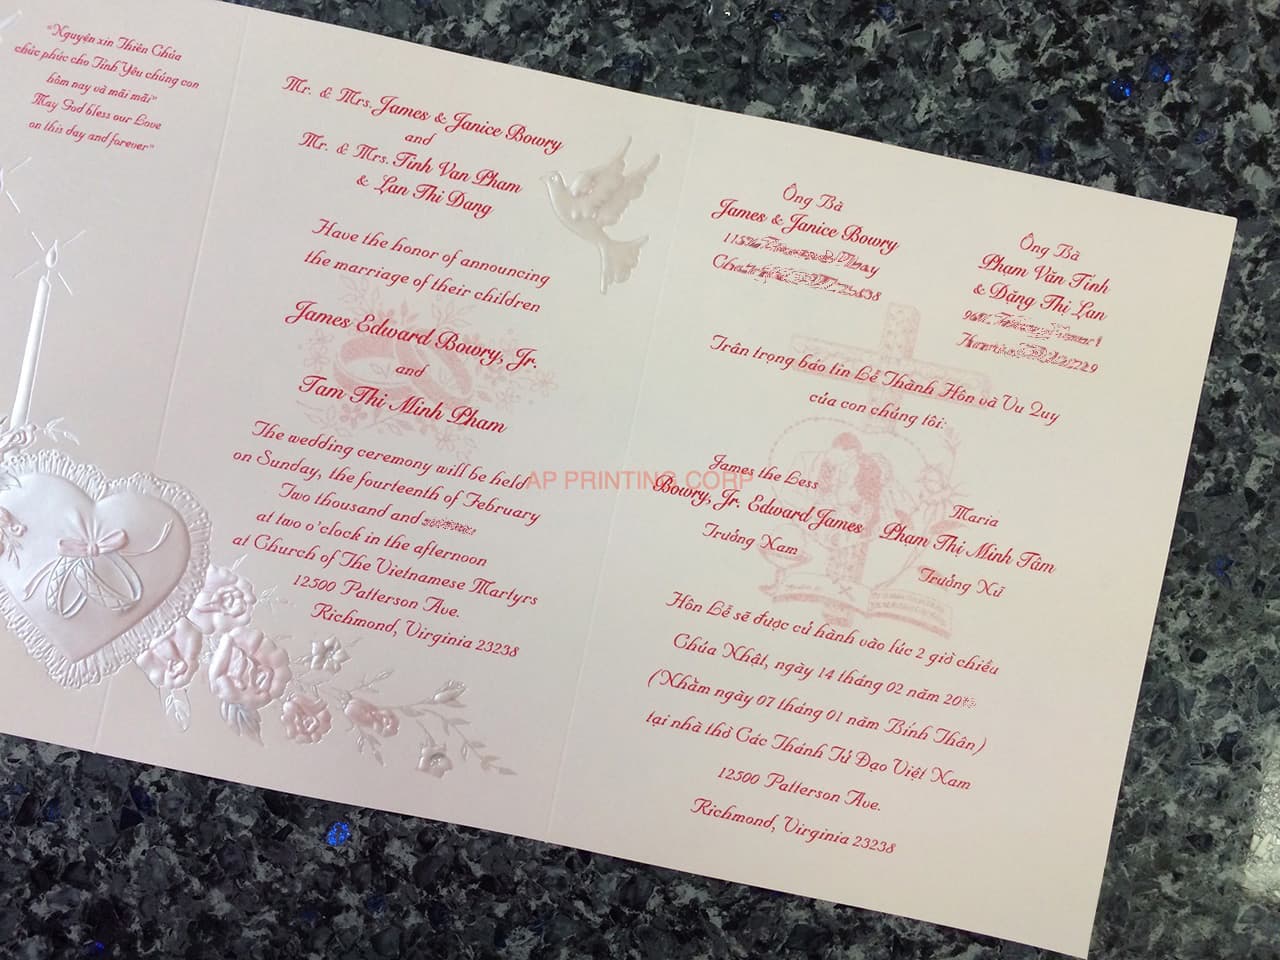 "Nguyện xin Thiên Chúa
chúc phúc cho Tình Yêu chúng con
hôm nay và mãi mãi"
May God bless our Love
on this day and forever"
Mr. & Mrs. James & Janice Bowry
and
Mr. & Mrs. Tinh Van Pham
& Lan Thi Dang
Have the honor of announcing
the marriage of their children
James Edward Bowry, Jr.
and
Tam Thi Minh Pham
The wedding ceremony will be held
on Sunday, the fourteenth of February
Two thousand and
at two o'clock in the afternoon
at Church of The Vietnamese Martyrs
12500 Patterson Ave.
Richmond, Virginia 23238
AP PRINTING CORP
Ông Bà
James & Janice Bowry
Ông Bà
Phạm Văn Tính
& Đặng Thị Lan
Trân trọng báo tin Lễ Thành Hôn và Vu Quy
của con chúng tôi:
James the Less
Bowry, Jr. Edward James
Trưởng Nam
Maria
Phạm Thị Minh Tâm
Trưởng Nữ
Hôn Lễ sẽ được cử hành vào lúc 2 giờ chiều
Chúa Nhật, ngày 14 tháng 02 năm
(Nhằm ngày 07 tháng 01 năm Bính Thân)
tại nhà thờ Các Thánh Tử Đạo Việt Nam
12500 Patterson Ave.
Richmond, Virginia 23238